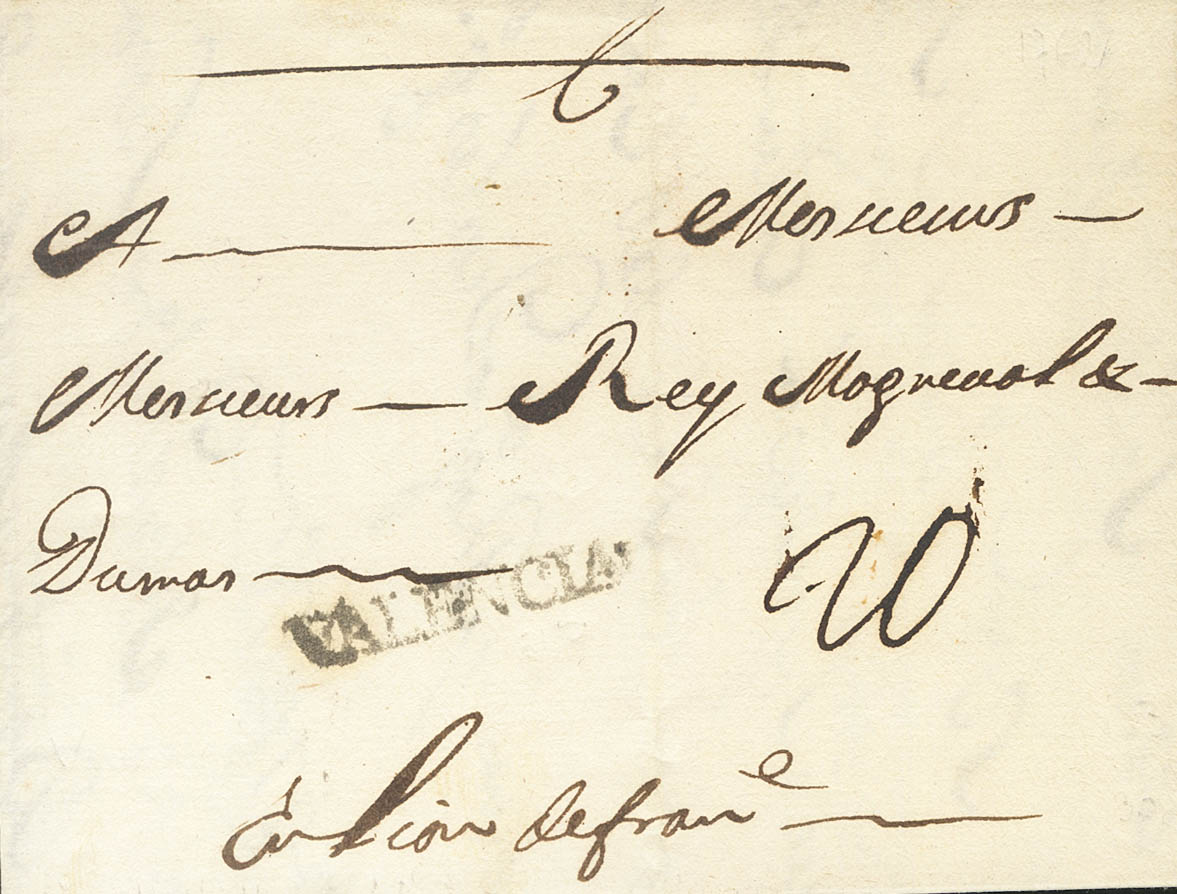 A Messieurs
Messieurs Rey Magneval &
Dumas
VALENCIA
20
En Lion de france